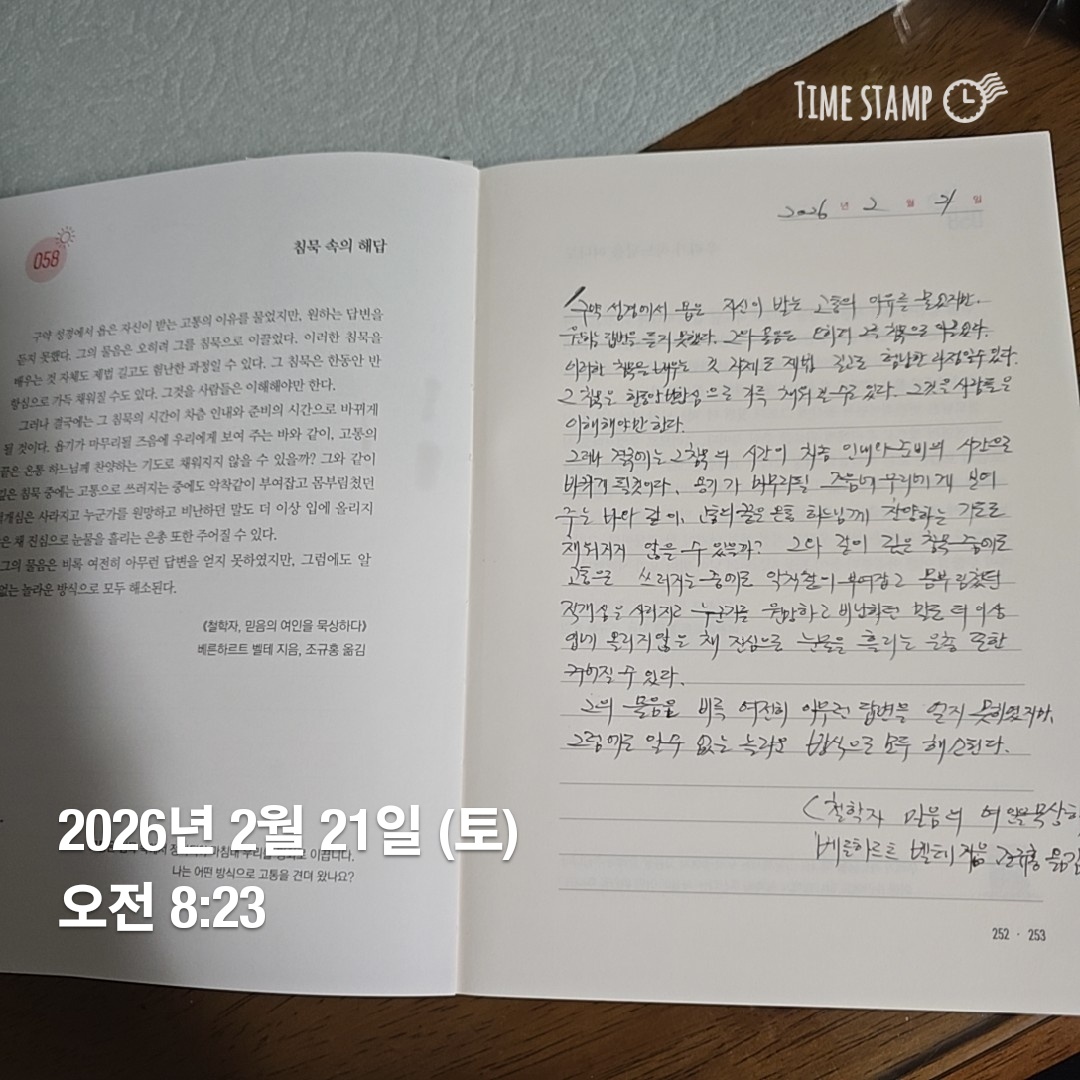 TIME STAMP
058
침묵 속의 해답
구약 성경에서 욥은 자신이 받는 고통의 이유를 물었지만, 원하는 답변을
듣지 못했다. 그의 물음은 오히려 그를 침묵으로 이끌었다. 이러한 침묵을
배우는 것 자체도 제법 길고도 험난한 과정일 수 있다. 그 침묵은 한동안 반
항심으로 가득 채워질 수도 있다. 그것을 사람들은 이해해야만 한다.
그러나 결국에는 그 침묵의 시간이 차츰 인내와 준비의 시간으로 바뀌게
될 것이다. 욥기가 마무리될 즈음에 우리에게 보여 주는 바와 같이, 고통의
끝은 온통 하느님께 찬양하는 기도로 채워지지 않을 수 있을까? 그와 같이
깊은 침묵 중에는 고통으로 쓰러지는 중에도 악착같이 부여잡고 몸부림쳤던
적개심은 사라지고 누군가를 원망하고 비난하던 말도 더 이상 입에 올리지
은 채 진심으로 눈물을 흘리는 은총 또한 주어질 수 있다.
그의 물음은 비록 여전히 아무런 답변을 얻지 못하였지만, 그럼에도 알
없는 놀라운 방식으로 모두 해소된다.
《철학자, 믿음의 여인을 묵상하다》
베른하르트 벨테 지음, 조규홍 옮김
우리를 이끕니다.
나는 어떤 방식으로 고통을 견뎌 왔나요?
2026년 2월 21일
구약 성경에서 욥은 자신이 받는 고통의 이유를 물었지만.
원하는 답변을 듣지 못했다. 그의 물음은 오히려 그를 침묵으로 이끌었다.
이러한 침묵을 배우는 것 자체도 제법 길고도 험난한 과정일수 있다.
그 침묵은 한동안 반항심으로 가득 채워질 수도 있다. 그것을 사람들은
이해해야만 한다.
그러나 결국에는 그 침묵의 시간이 차츰 인내와 준비의 시간으로
바뀌게 될것이다. 욥기가 마무리될 즈음에 우리에게 보여
주는 바와 같이, 고통의 끝은 온통 하느님께 찬양하는 기도로
채워지지 않을 수 있을까? 그와 같이 깊은 침묵 중에도
고통으로 쓰러지는 중에도 악착같이 부여잡고 몸부림쳤던
적개심은 사라지고 누군가를 원망하고 비난하던 말도 더 이상
입에 올리지않은 채 진심으로 눈물을 흘리는 은총 또한
주어질 수 있다.
그의 물음은 비록 여전히 아무런 답변을 얻지 못하였지만,
그럼에도 알수 없는 놀라운 방식으로 모두 해소된다.
&lt;철학자 믿음의 여인을묵상하
베른하르트 벨테 지음 조규홍 옮김
252 · 253
2026년 2월 21일 (토)
오전 8:23